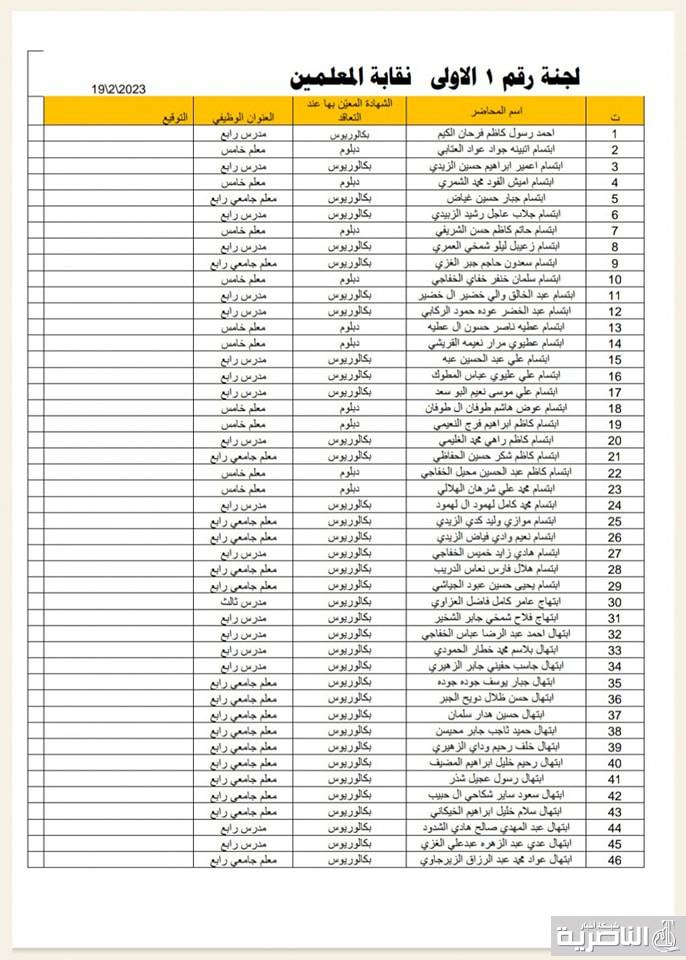 لجنة رقم ١ الاولى نقابة المعلمين
19\2\2023
ت اسم المحاضر الشهادة المعيّن بها عند التعاقد العنوان الوظيفي التوقيع
1 احمد رسول كاظم فرحان الكيم بكالوريوس مدرس رابع
2 ابتسام اتبينه جواد عواد العتابي دبلوم معلم خامس
3 ابتسام اعمير ابراهيم حسين الزيدي بكالوريوس مدرس رابع
4 ابتسام اميش الفود محمد الشمري دبلوم معلم خامس
5 ابتسام جبار حسين غياض بكالوريوس معلم جامعي رابع
6 ابتسام جلاب عاجل رشيد الزبيدي بكالوريوس مدرس رابع
7 ابتسام حاتم كاظم حسن الشريفي دبلوم معلم خامس
8 ابتسام زعيبل ليلو شمخي العمري بكالوريوس مدرس رابع
9 ابتسام سعدون حاجم جبر الغزي بكالوريوس معلم جامعي رابع
10 ابتسام سلمان خنفر خفاي الخفاجي دبلوم معلم خامس
11 ابتسام عبد الخالق والي خضير ال خضير بكالوريوس مدرس رابع
12 ابتسام عبد الخضر عوده حمود الركابي بكالوريوس مدرس رابع
13 ابتسام عطيه ناصر حسون ال عطيه دبلوم معلم خامس
14 ابتسام عطيوي مرار نعيمه القريشي دبلوم معلم خامس
15 ابتسام علي عبد الحسين عبه بكالوريوس مدرس رابع
16 ابتسام علي عليوي عباس المطوك بكالوريوس مدرس رابع
17 ابتسام علي موسى نعيم البو سعد بكالوريوس مدرس رابع
18 ابتسام عوض هاشم طوفان ال طوفان دبلوم معلم خامس
19 ابتسام كاظم ابراهيم فرج النعيمي دبلوم معلم خامس
20 ابتسام كاظم راهي محمد الغليمي بكالوريوس مدرس رابع
21 ابتسام كاظم شكر حسين الحفاظي بكالوريوس معلم جامعي رابع
22 ابتسام كاظم عبد الحسين محيل الخفاجي دبلوم معلم خامس
23 ابتسام محمد علي شرهان الهلالي دبلوم معلم خامس
24 ابتسام محمد كامل لهمود ال لهمود بكالوريوس مدرس رابع
25 ابتسام موازي وليد كدي الزيدي بكالوريوس معلم جامعي رابع
26 ابتسام نعيم وادي فياض الزيدي بكالوريوس معلم جامعي رابع
27 ابتسام هادي زايد خميس الخفاجي بكالوريوس مدرس رابع
28 ابتسام هلال فارس نعاس الدريب بكالوريوس معلم جامعي رابع
29 ابتسام يحيى حسين عبود الجياشي بكالوريوس معلم جامعي رابع
30 ابتهاج عامر كامل فاضل العزاوي بكالوريوس مدرس ثالث
31 ابتهاج فلاح شمخي جابر الشخير بكالوريوس مدرس رابع
32 ابتهال احمد عبد الرضا عباس الخفاجي بكالوريوس مدرس رابع
33 ابتهال بلاسم محمد خطار الحمودي بكالوريوس مدرس رابع
34 ابتهال جاسب حفيتي جابر الزهيري بكالوريوس مدرس رابع
35 ابتهال جبار يوسف جوده جوده بكالوريوس معلم جامعي رابع
36 ابتهال حسن ظلال دويح الجبر بكالوريوس معلم جامعي رابع
37 ابتهال حسين هدار سلمان بكالوريوس معلم جامعي رابع
38 ابتهال حميد ثاجب جابر محيسن بكالوريوس معلم جامعي رابع
39 ابتهال خلف رحيم وداي الزهيري بكالوريوس معلم جامعي رابع
40 ابتهال رحيم خليل ابراهيم المضيف بكالوريوس معلم جامعي رابع
41 ابتهال رسول عجيل شذر بكالوريوس معلم جامعي رابع
42 ابتهال سعود ساير شكاحي ال حبيب بكالوريوس معلم جامعي رابع
43 ابتهال سلام خليل ابراهيم الخيكاني بكالوريوس معلم جامعي رابع
44 ابتهال عبد المهدي صالح هادي الشدود بكالوريوس مدرس رابع
45 ابتهال عدي عبد الزهره عبدعلي الغزي بكالوريوس مدرس رابع
46 ابتهال عواد محمد عبد الرزاق الزيرجاوي بكالوريوس معلم جامعي رابع
شبكة اخبار
الناصرية